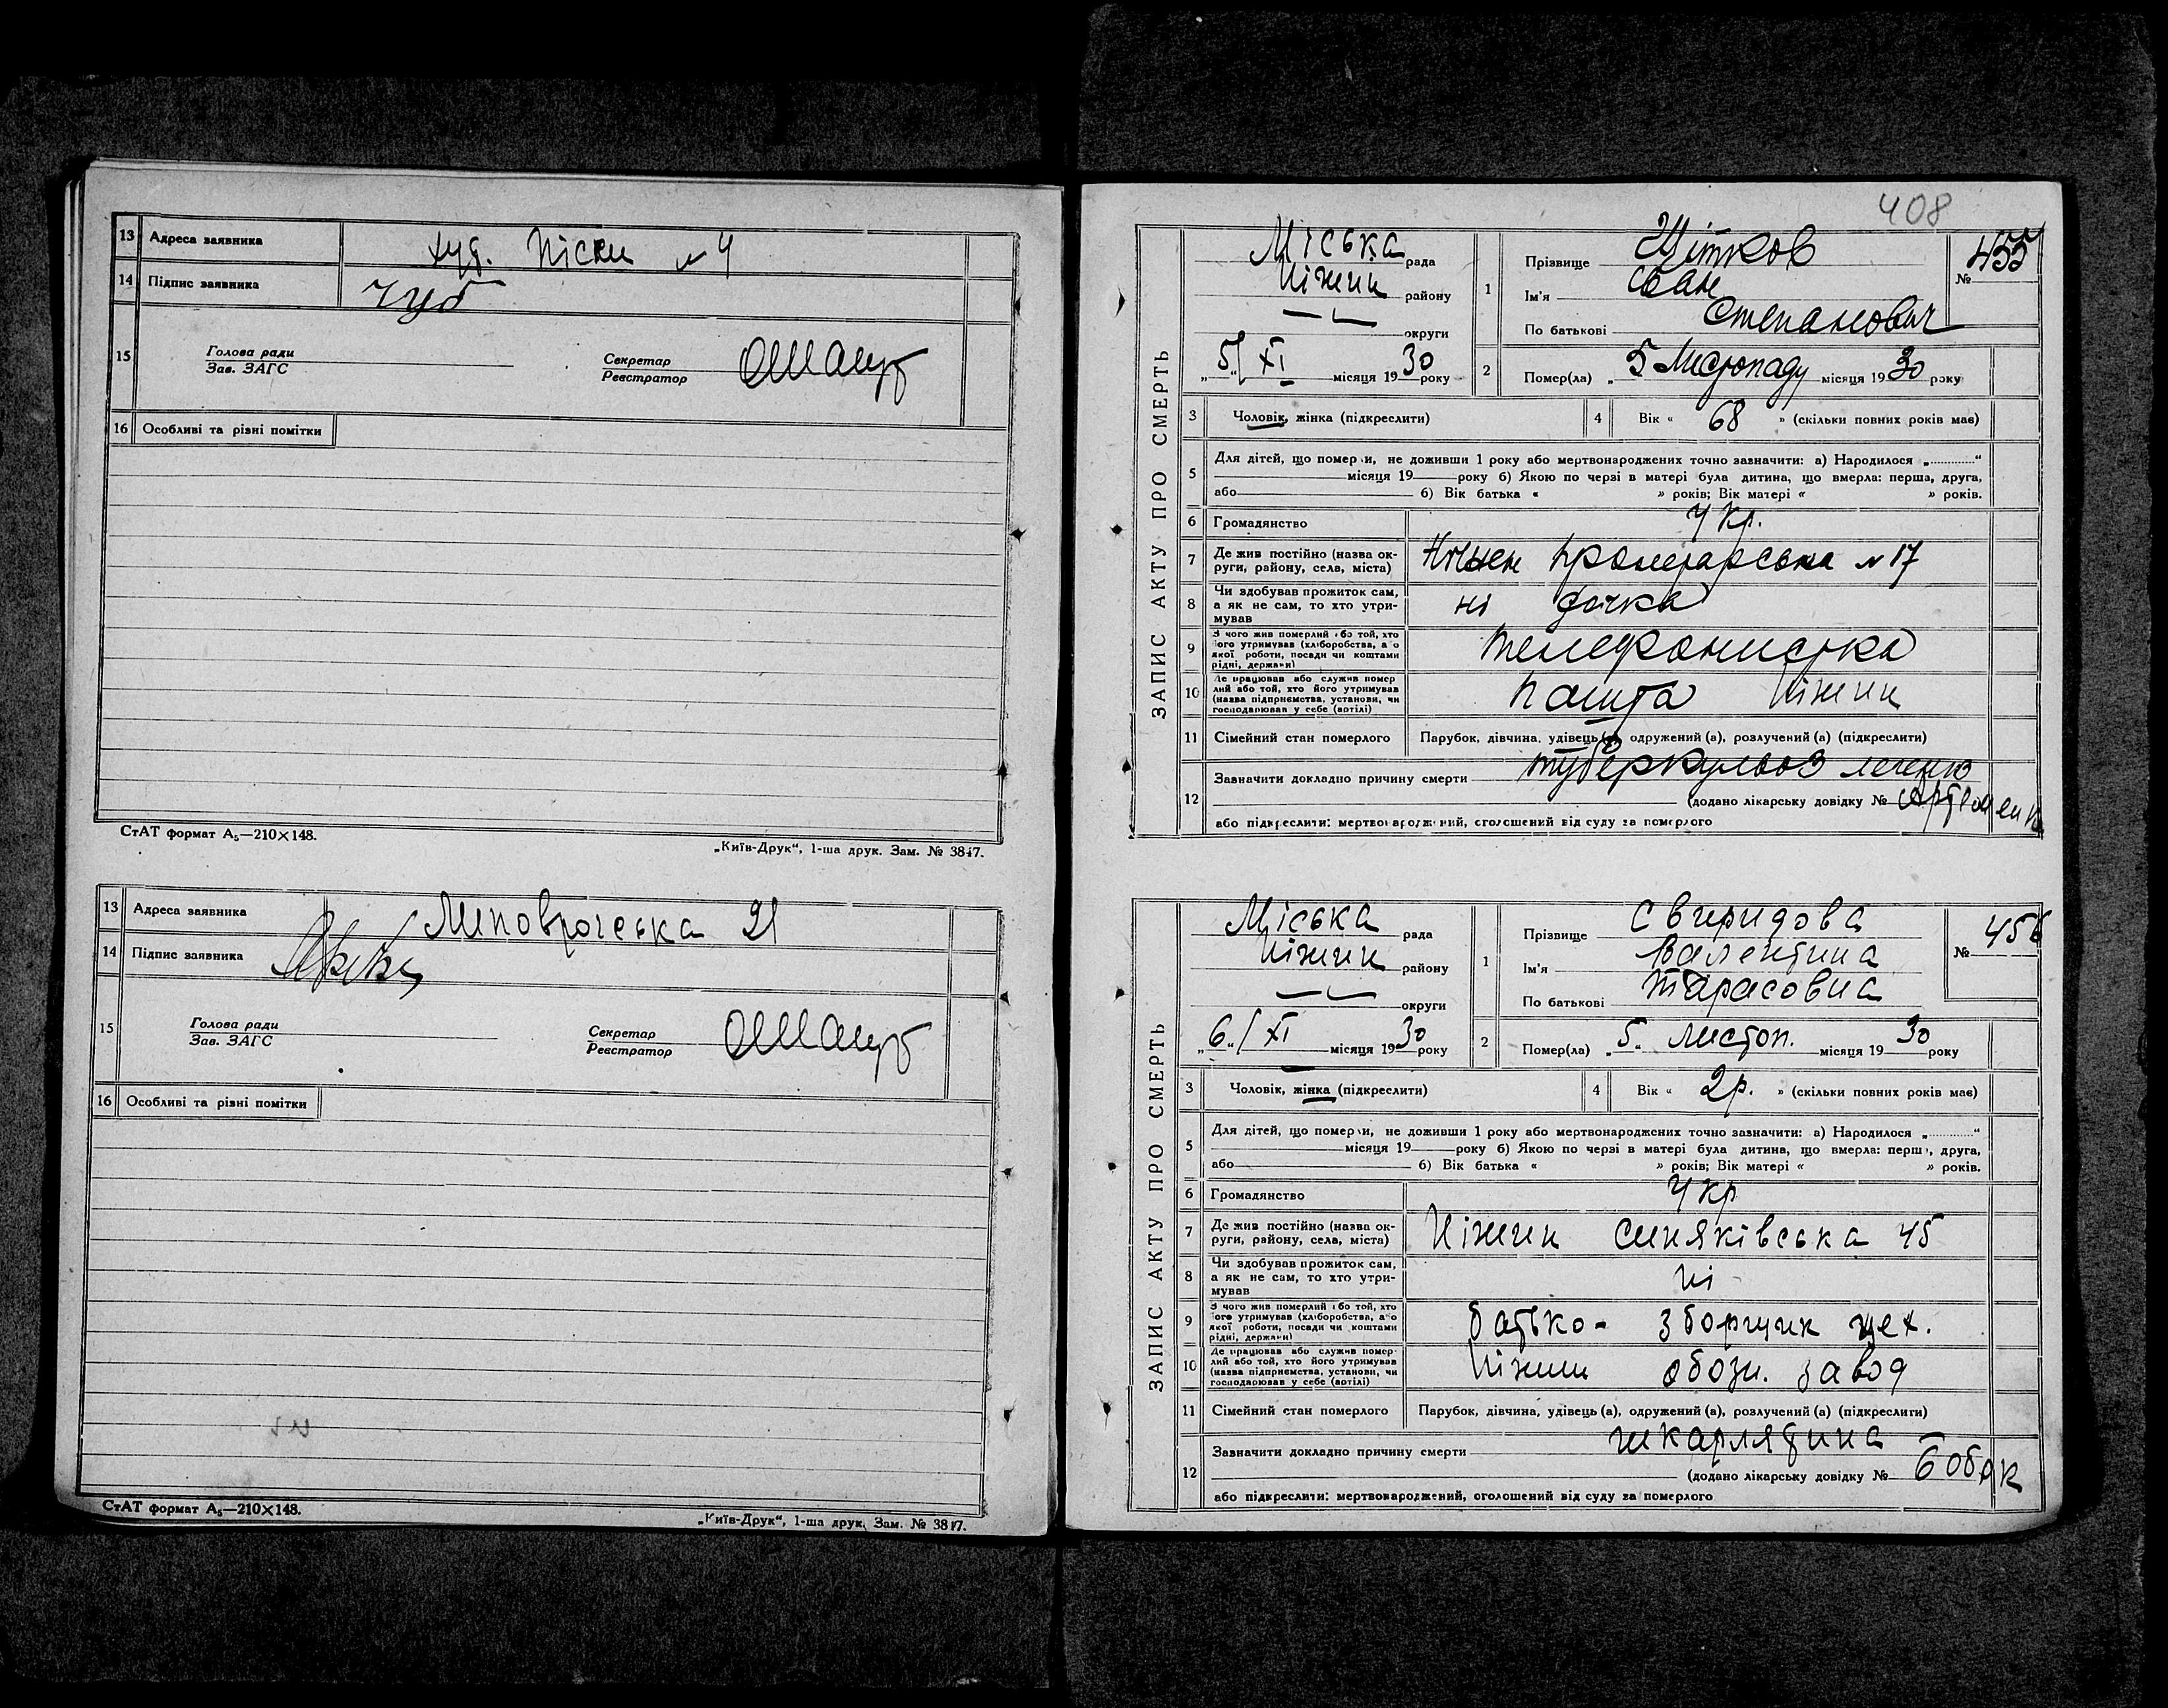 13 Адреса заявника хут. Піски № 4
14 Підпис заявника Чуб
15 Голова ради
Зав. ЗАГС
Секретар
Реєстратор
16 Особливі та різні помітки
СтАТ формат А5—210×148.
„Київ-Друк“, 1-ша друк. Зам. № 3847.
13 Адреса заявника 21
14 Підпис заявника
15 Голова ради
Зав. ЗАГС
Секретар
Реєстратор
16 Особливі та різні помітки
СтАТ формат А5—210×148.
„Київ-Друк“, 1-ша друк. Зам. № 3847.
408
ЗАПИС АКТУ ПРО СМЕРТЬ
Міська рада
Ніжин району
округи
„5“/XI місяця 1930 року
1 Прізвище Щітков
Ім'я Іван
По батькові Степанович
№ 455
2 Помер(ла) „5 Листопаду місяця 1930 року
3 Чоловік, жінка (підкреслити)
4 Вік « 68 » (скільки повних років має)
5 Для дітей, що померли, не доживши 1 року або мертвонароджених точно зазначити: а) Народилося „ “
місяця 19 року б) Якою по черзі в матері була дитина, що вмерла: перша, друга,
або б) Вік батька « » років; Вік матері « » років.
6 Громадянство Укр.
7 Де жив постійно (назва округи, району, села, міста) Ніжен Пролетарська № 17
8 Чи здобував прожиток сам, а як не сам, то хто утримував ні дочка
9 З чого жив померлий або той, хто його утримував (хліборобства, або якої роботи, посади чи коштами рідні, держави) телефонистка
10 Де працював або служив померлий або той, хто його утримував (назва підприємства, установи, чи господарював у себе (артілі) пошта Ніжин
11 Сімейний стан померлого Парубок, дівчина, удівець (а), одружений (а), розлучений (а) (підкреслити)
12 Зазначити докладно причину смерти туберкульоз легенів
(додано лікарську довідку № Артеменк
або підкреслити: мертвонароджений, оголошений від суду за померлого
ЗАПИС АКТУ ПРО СМЕРТЬ
Міська рада
Ніжин району
округи
„6“/XI місяця 1930 року
1 Прізвище Свиридова
Ім'я Валентина
По батькові Тарасовна
№ 456
2 Помер(ла) „5“ Листоп. місяця 1930 року
3 Чоловік, жінка (підкреслити)
4 Вік « 2р. » (скільки повних років має)
5 Для дітей, що померли, не доживши 1 року або мертвонароджених точно зазначити: а) Народилося „ “
місяця 19 року б) Якою по черзі в матері була дитина, що вмерла: перша, друга,
або б) Вік батька « » років; Вік матері « » років.
6 Громадянство Укр
7 Де жив постійно (назва округи, району, села, міста) Ніжин Синяківська 45
8 Чи здобував прожиток сам, а як не сам, то хто утримував ні
9 З чого жив померлий або той, хто його утримував (хліборобства, або якої роботи, посади чи коштами рідні, держави) батько - зборщик цех.
10 Де працював або служив померлий або той, хто його утримував (назва підприємства, установи, чи господарював у себе (артілі) Ніжин обозн. завод
11 Сімейний стан померлого Парубок, дівчина, удівець (а), одружений (а), розлучений (а) (підкреслити)
12 Зазначити докладно причину смерти шкарлятина
(додано лікарську довідку № Бобок
або підкреслити: мертвонароджений, оголошений від суду за померлого